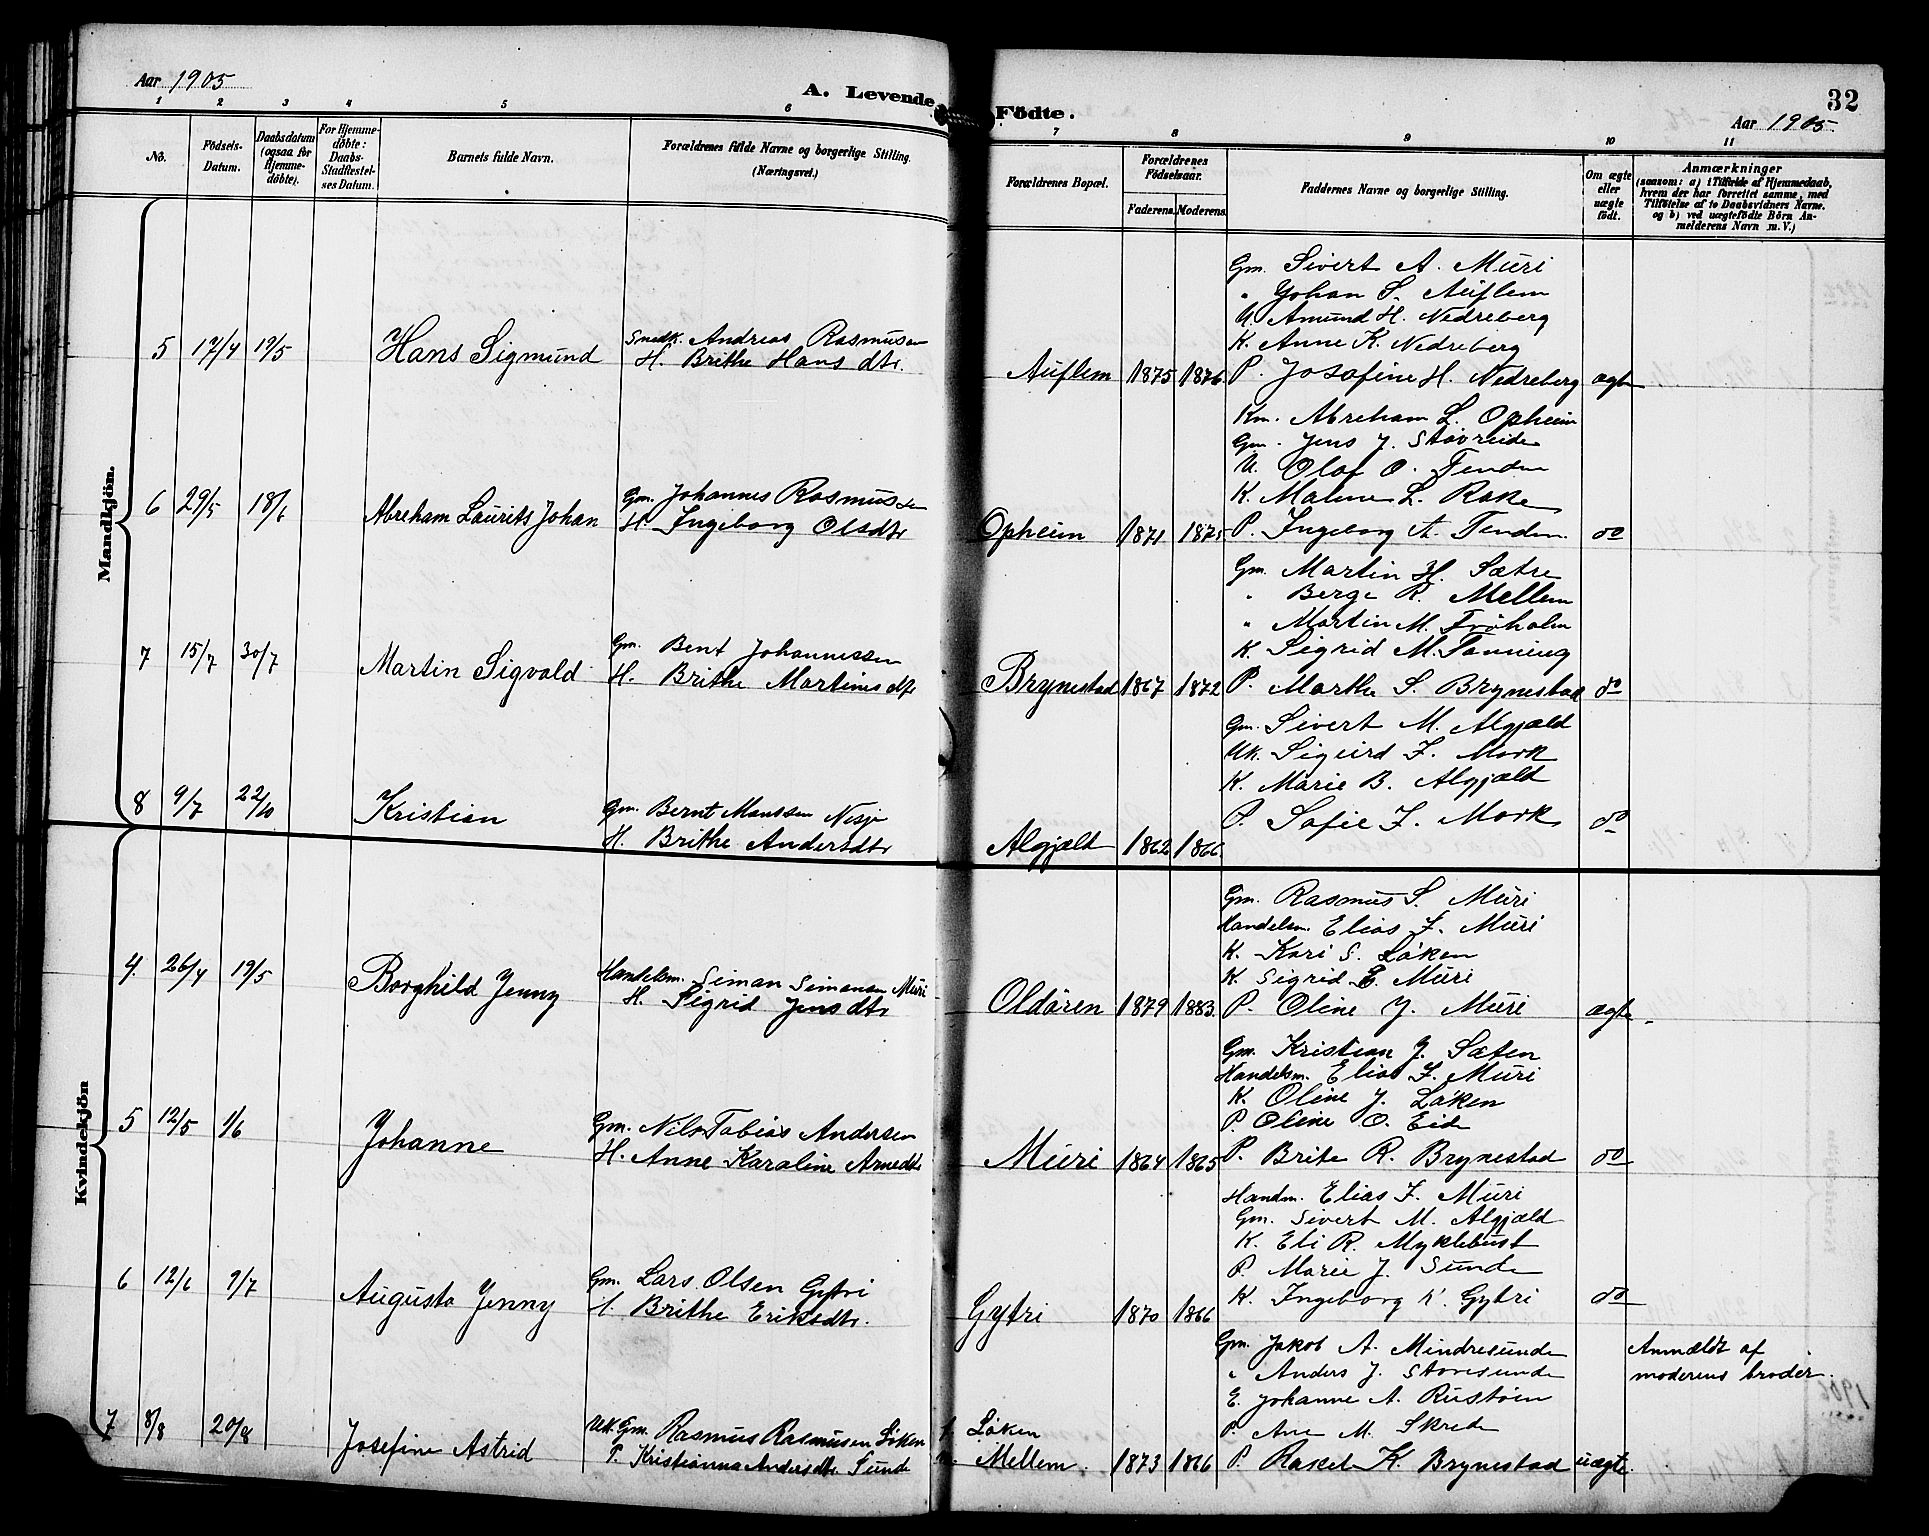 Aar 1905
A. Levende Födte.
32
Aar 1905
1 2 3 4 5 6 7 8 9 10 11
No.
Födsels-Datum.
Daabsdatum (ogsaa for Hjemme-døbte).
For Hjemme-døbte: Daabs-Stadfæstel-ses Datum.
Barnets fulde Navn.
Forældrenes fulde Navne og borgerlige Stilling. (Næringsvei.)
Forældrenes Bopæl.
Forældrenes Födselsaar.
Faderens. Moderens.
Faddernes Navne og borgerlige Stilling.
Om ægte eller uægte födt.
Anmærkninger
(saasom: a) i Tilfælde af Hjemmedaab,
hvem der har forrettet samme, med
Tilföielse af to Daabsvidners Navne.
og b) ved uægtefödte Börn An-
melderens Navn m. V.)
Mandkjön.
Gm. Sivert A. Muri
" Johan S. Auflem
U. Amund H. Nedreberg
K. Anne K. Nedreberg
5 17/4 19/5 Hans Sigmund Snedk. Andreas Rasmusen
H. Brithe Hansdtr. Auflem 1875 1876 P. Josefine H. Nedreberg ægte
Km. Abreham L. Opheim
Gm. Jens J. Støvreide
U. Olaf O. Tenden
K. Malene L. Rake
6 29/5 18/6 Abreham Laurits Johan Gm. Johannes Rasmussen
H. Ingeborg Olsdtr Opheim 1871 1875 P. Ingeborg A. Tenden do
Gm. Martin H. Sætre
" Berge R. Mellem
" Martin M. Frøholm
K. Sigrid M. Tonning
7 15/7 30/7 Martin Sigvald Gm. Bent Johannessen
H. Brithe Martinusdtr Brynestad 1867 1872 P. Marthe S. Brynestad do
Gm. Sivert M. Algjæld
Uk. Sigurd F. Mork
K. Marie B. Algjæld
8 9/7 22/10 Kristian Gm. Bernt Monssen Nesje
H. Brithe Andersdtr Algjæld 1862 1866 P. Sofie F. Mork do
Kvindekjön
Gm. Rasmus S. Muri
Handelsm. Elias F. Muri
K. Kari S. Løken
K. Sigrid E. Muri
4 26/4 19/5 Borghild Jenny Handelsm. Simon Simonsen Muri
H. Sigrid Jensdtr Oldøren 1879 1883 P. Oline J. Muri ægte
Gm. Kristian J. Sæten
Handelsm. Elias F. Muri
K. Oline J. Løken
P. Oline O. Eide
5 12/5 1/6 Johanne Gm. Nils Tobias Andersen
H. Anne Karoline Arnedtr Muri 1864 1865 P. Brite R. Brynestad do
Handm. Elias F. Muri
Gm. Sivert M. Algjæld
K. Eli R. Myklebust
P. Marie J. Sunde
6 12/6 9/7 Augusta Jenny Gm. Lars Olsen Gytri
H. Brithe Eriksdtr. Gytri 1870 1866 K. Ingeborg K. Gytri do
Gm. Jakob A. Mindresunde
" Anders J. Storesunde
E. Johanne A. Rustøen
P. Ane M. Skrede
Anmeldt af
moderens broder.
7 8/8 20/8 Josefine Astrid Uk. Gm. Rasmus Rasmusen Løken
P. Kristianna Andersdtr Sunde f. Løken
m. Mellem. 1873 1866 P. Rakel K. Brynestad uægte.